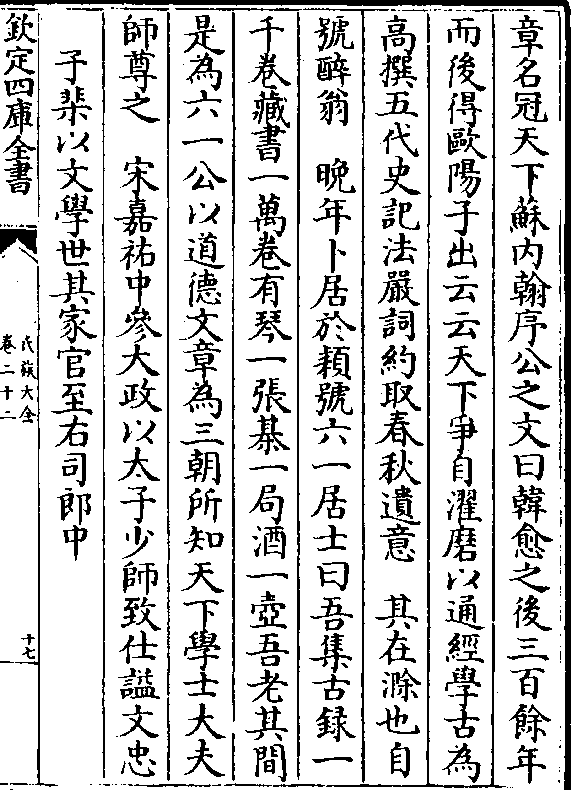 章名冠天下蘇内翰序公之文曰韓愈之後三百餘年
而後得歐陽子出云云天下爭自濯磨以通經學古為
高撰五代史記法嚴詞約取春秋遺意　其在滁也自
號醉翁　晚年卜居於頴號六一居士曰吾集古録一
千卷藏書一萬卷有琴一張棊一局酒一壺吾老其間
是為六一公以道德文章為三朝所知天下學士大夫
師尊之　宋嘉祐中參大政以太子少師致仕謚文忠
子棐以文學世其家官至右司郎中
欽定四庫全書
氏族大全
卷二十二
十七